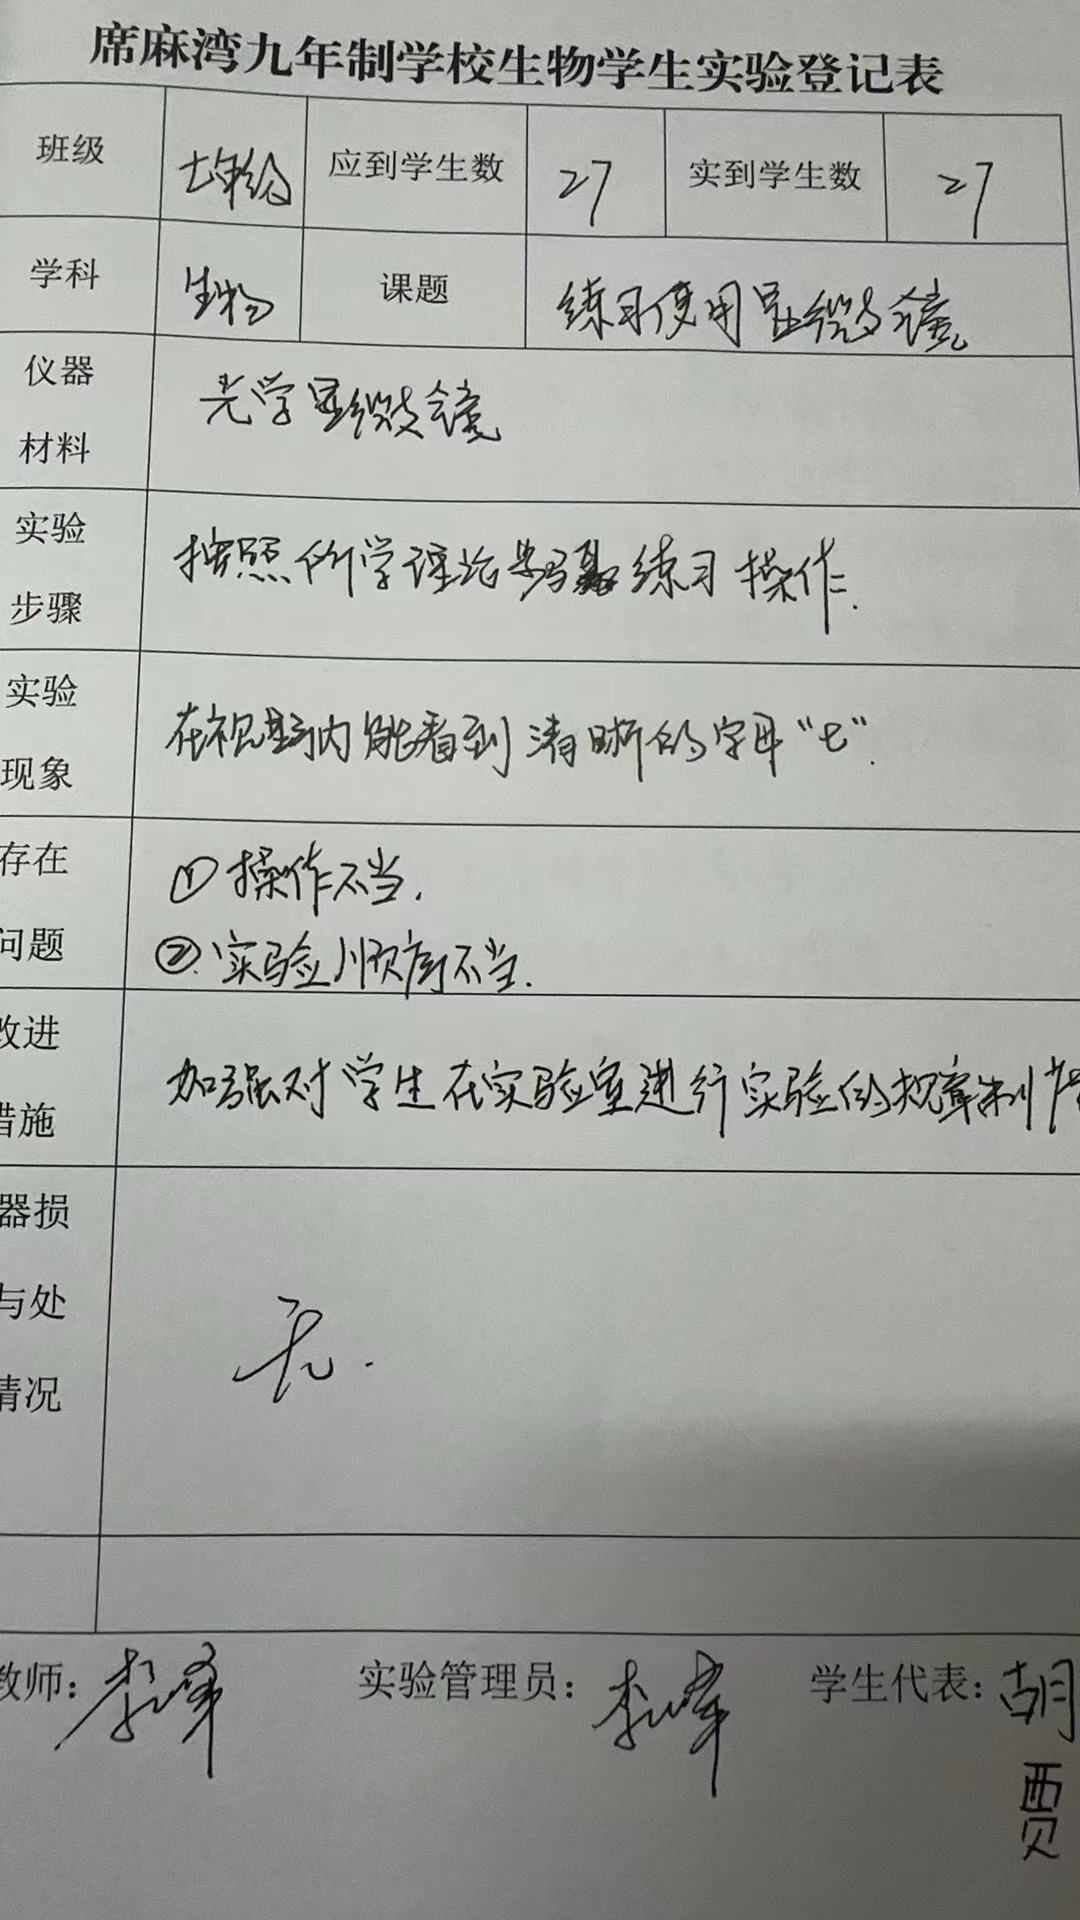 席麻湾九年制学校生物学生实验登记表
班级 七年级 应到学生数 27 实到学生数 27
学科 生物 课题 练习使用显微镜
仪器
材料
光学显微镜
实验
步骤
按照所学理论步骤练习操作.
实验
现象
在视野内能看到清晰的字母“e”.
存在
问题
①操作不当.
②.实验顺序不当.
改进
措施
加强对学生在实验室进行实验的规章制
器损
与处
情况
无.
教师: 李峰 实验管理员: 李峰 学生代表: 胡
贾